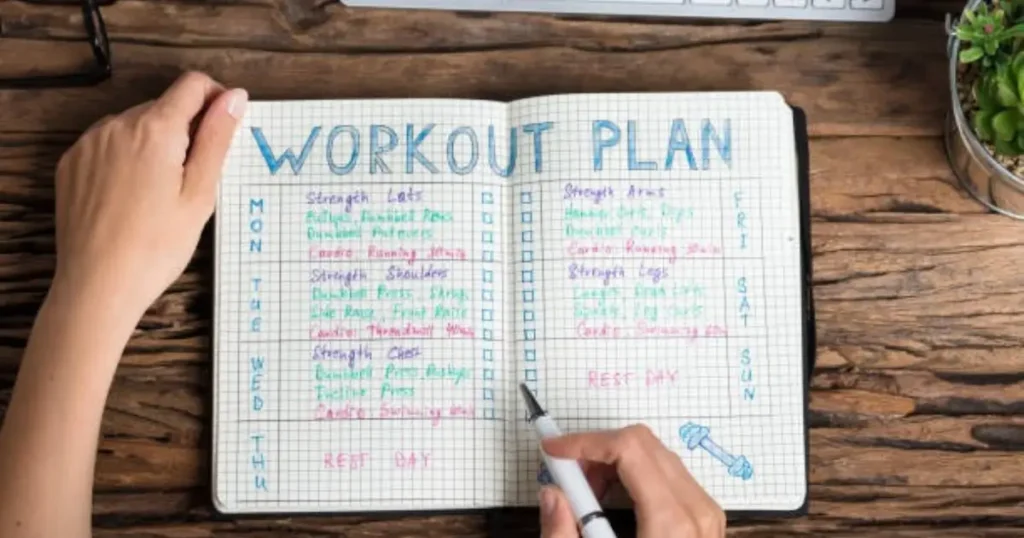 WORKOUT PLAN
MON
Strength Lats
Dumbbell Rows
Dumbbell
Cardio: Running 30min
TUE
Strength Shoulders
Dumbbell Press, Shrug
Side Raise, Front Raise
Cardio:
WED
Strength Chest
Dumbbell Press,
Incline Press
Cardio Swimming
THU
REST DAY
FRI
Strength Arms
Hammer Curls, Dips
Dumbbell Curls
Cardio: Running
SAT
Strength Legs
Leg Curls
Cardio: Swimming
SUN
REST DAY